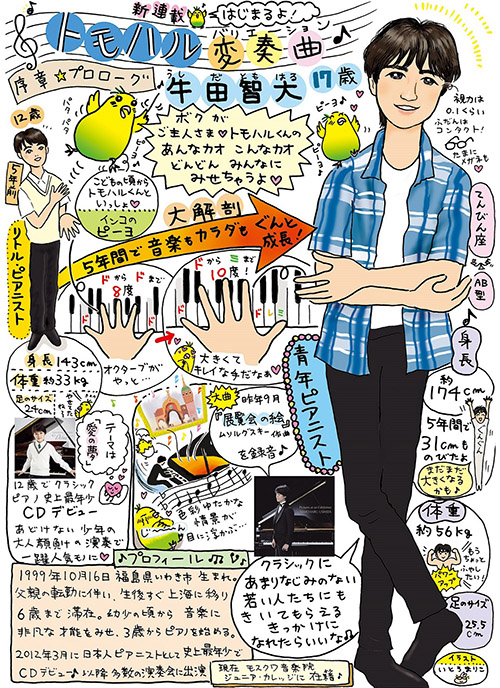 新連載 はじまるよ♪
トモハル変奏曲
バリエーション
序章★プロローグ
牛田智大 17歳
うし だ とも はる
12歳
5年前
リトル・ピアニスト
パタパタ
パタパタ
ピーヨ♪
ピーヨ♪
ボクが
ご主人さま♡トモハルくんの
あんなカオ こんなカオ
どんどん みんなに
みせちゃうよ♡
こどもの頃から
トモハルくんと
いっしょ♡
インコの
ピーヨ
視力は
0.1くらい
ふだんは
コンタクト!
たまに
メガネも♡
てんびん座
AB型
大解剖
5年間で音楽もカラダもぐんと
成長!
ドからドまで
8度
ドからミまで
10度!
ド
ド
ド
ドレミ
オクターブが
やっと…
大きくて
キレイな手だなぁ♥
身長 143cm
体重 約33kg
足のサイズ
24cm
青年ピアニスト
身長
約
174cm
ぐんぐん
5年間で
31cmも
のびたよ
まだまだ
大きくなる
かも♪
テーマは
愛の夢
12歳でクラシック
ピアノ史上最年少
CDデビュー
あどけない少年の
大人顔負けの演奏で
一躍人気もに♡
大曲
昨年9月
『展覧会の絵』
ムソルグスキー作曲
を録音♪
色彩ゆたかな
情景が
目に浮かぶ…
体重
約56kg
もう
ちょっと
ふやし
たい!
パワー
アップ
足のサイズ
25.5
cm
♪プロフィール♫
1999年10月16日 福島県いわき市 生まれ。
父親の転勤に伴い、生後すぐ上海に移り
6歳まで滞在。幼少の頃から 音楽に
非凡な才能をみせ、3歳からピアノを始める。
2012年3月に日本人ピアニストとして史上最年少で
CDデビュー♪以降 多数の演奏会に出演
クラシックに
あまりなじみのない
若い人たちにも
きいてもらえる
きっかけに
なれたらいいな♫
現在 モスクワ音楽院
ジュニア・カレッジに 在籍♪
イラスト
いとうまりこ